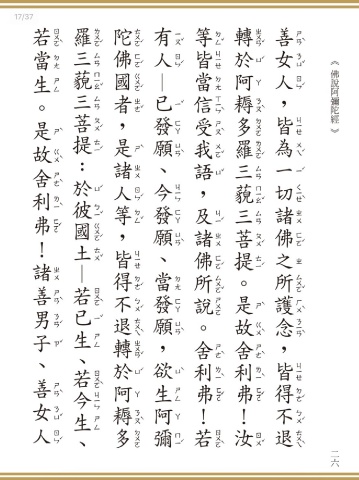 17/37
《佛說阿彌陀經》
善女人，皆為一切諸佛之所護念，皆得不退
轉於阿耨多羅三藐三菩提。是故舍利弗！汝
等皆當信受我語，及諸佛所說。舍利弗！若
有人—已發願、今發願、當發願，欲生阿彌
陀佛國者，是諸人等，皆得不退轉於阿耨多
羅三藐三菩提：於彼國土—若已生、若今生、
若當生。是故舍利弗！諸善男子、善女人
二六